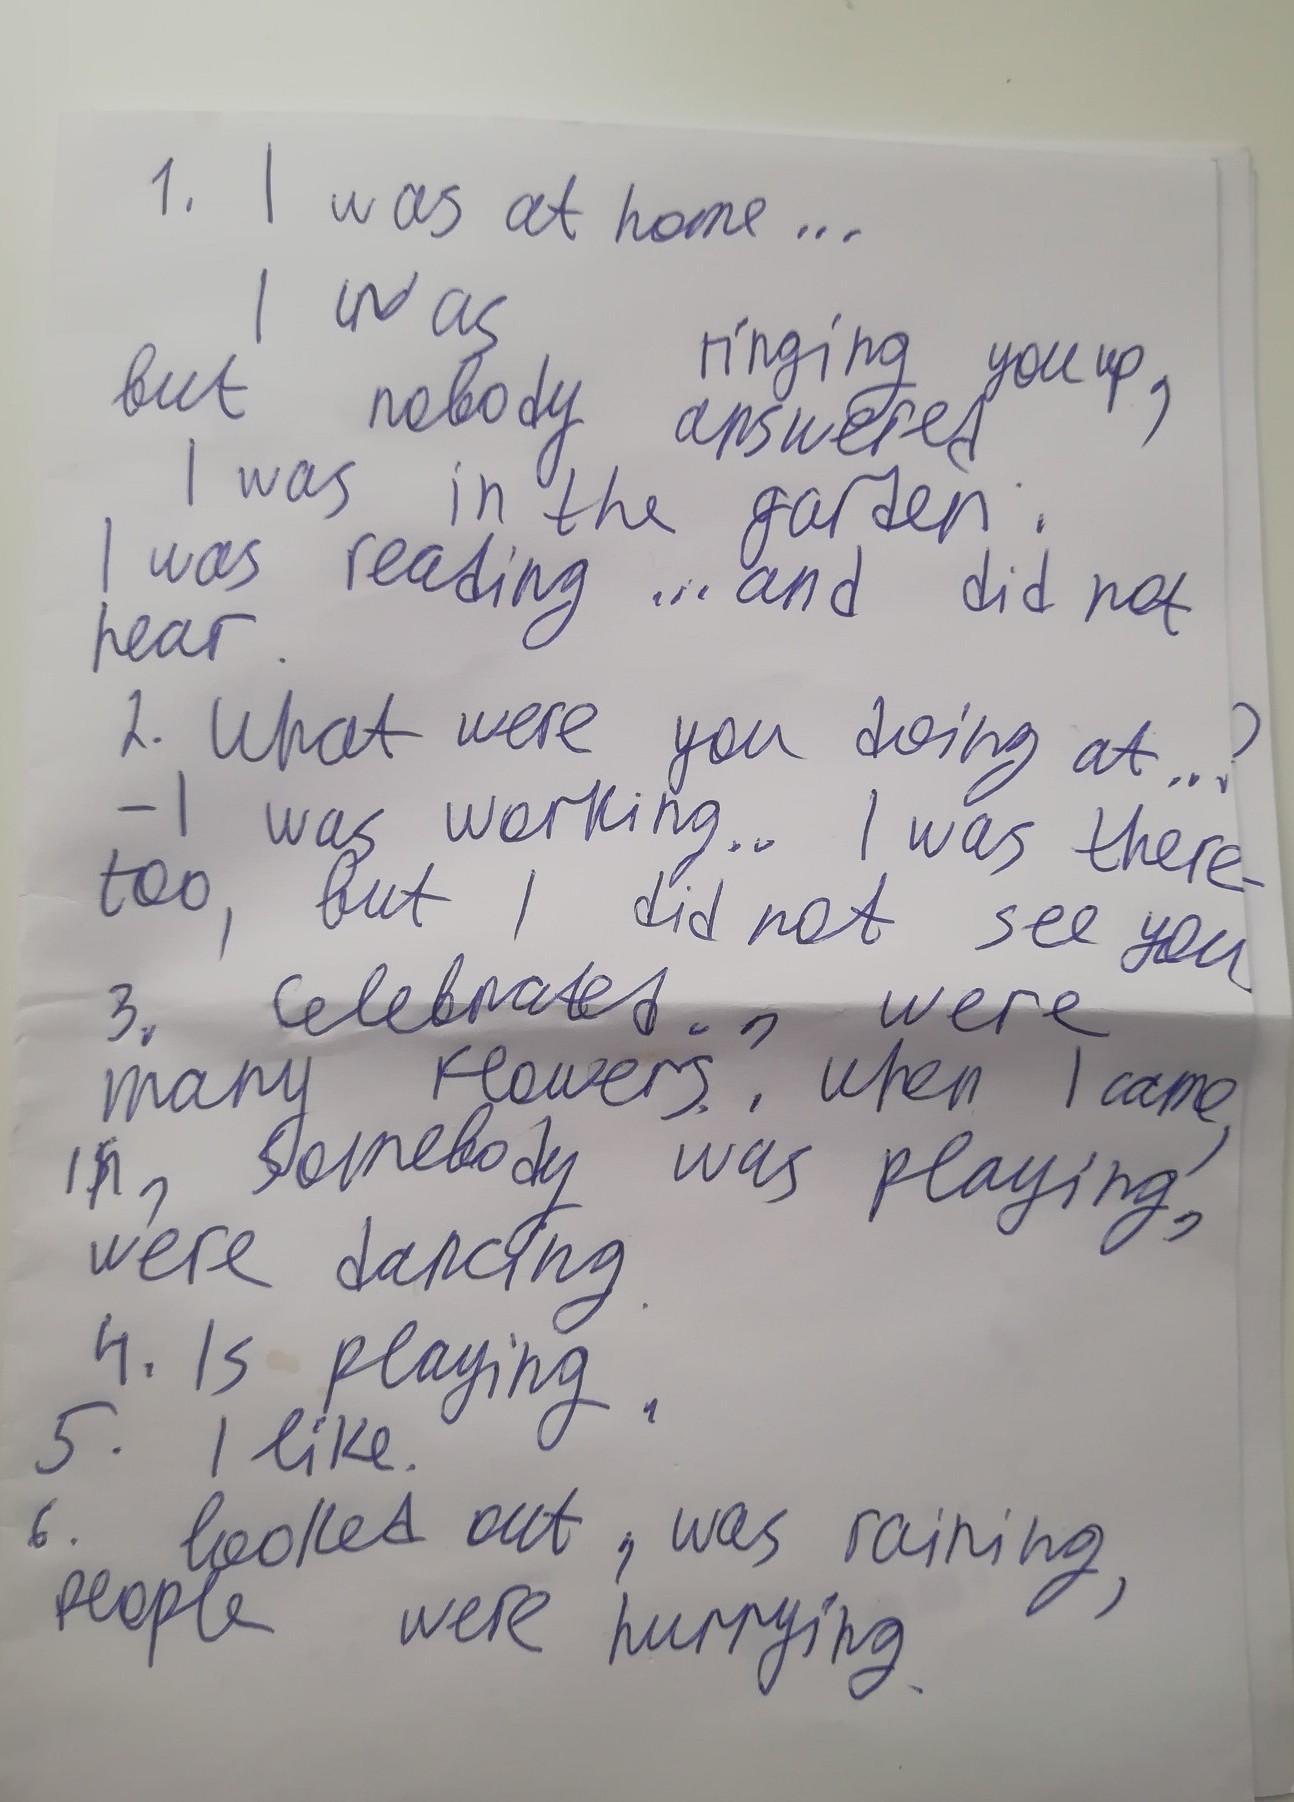 1. I was at home ...
I was ringing you up,
but nobody answered
I was in the garden.
I was reading ... and did not
hear.
2. What were you doing at...?
- I was working.. I was there
too, but I did not see you
3. Celebrated.., were
many flowers., when I came,
in, somebody was playing,
were dancing.
4. Is playing.
5. I like.
6. looked out, was raining,
people were hurrying.